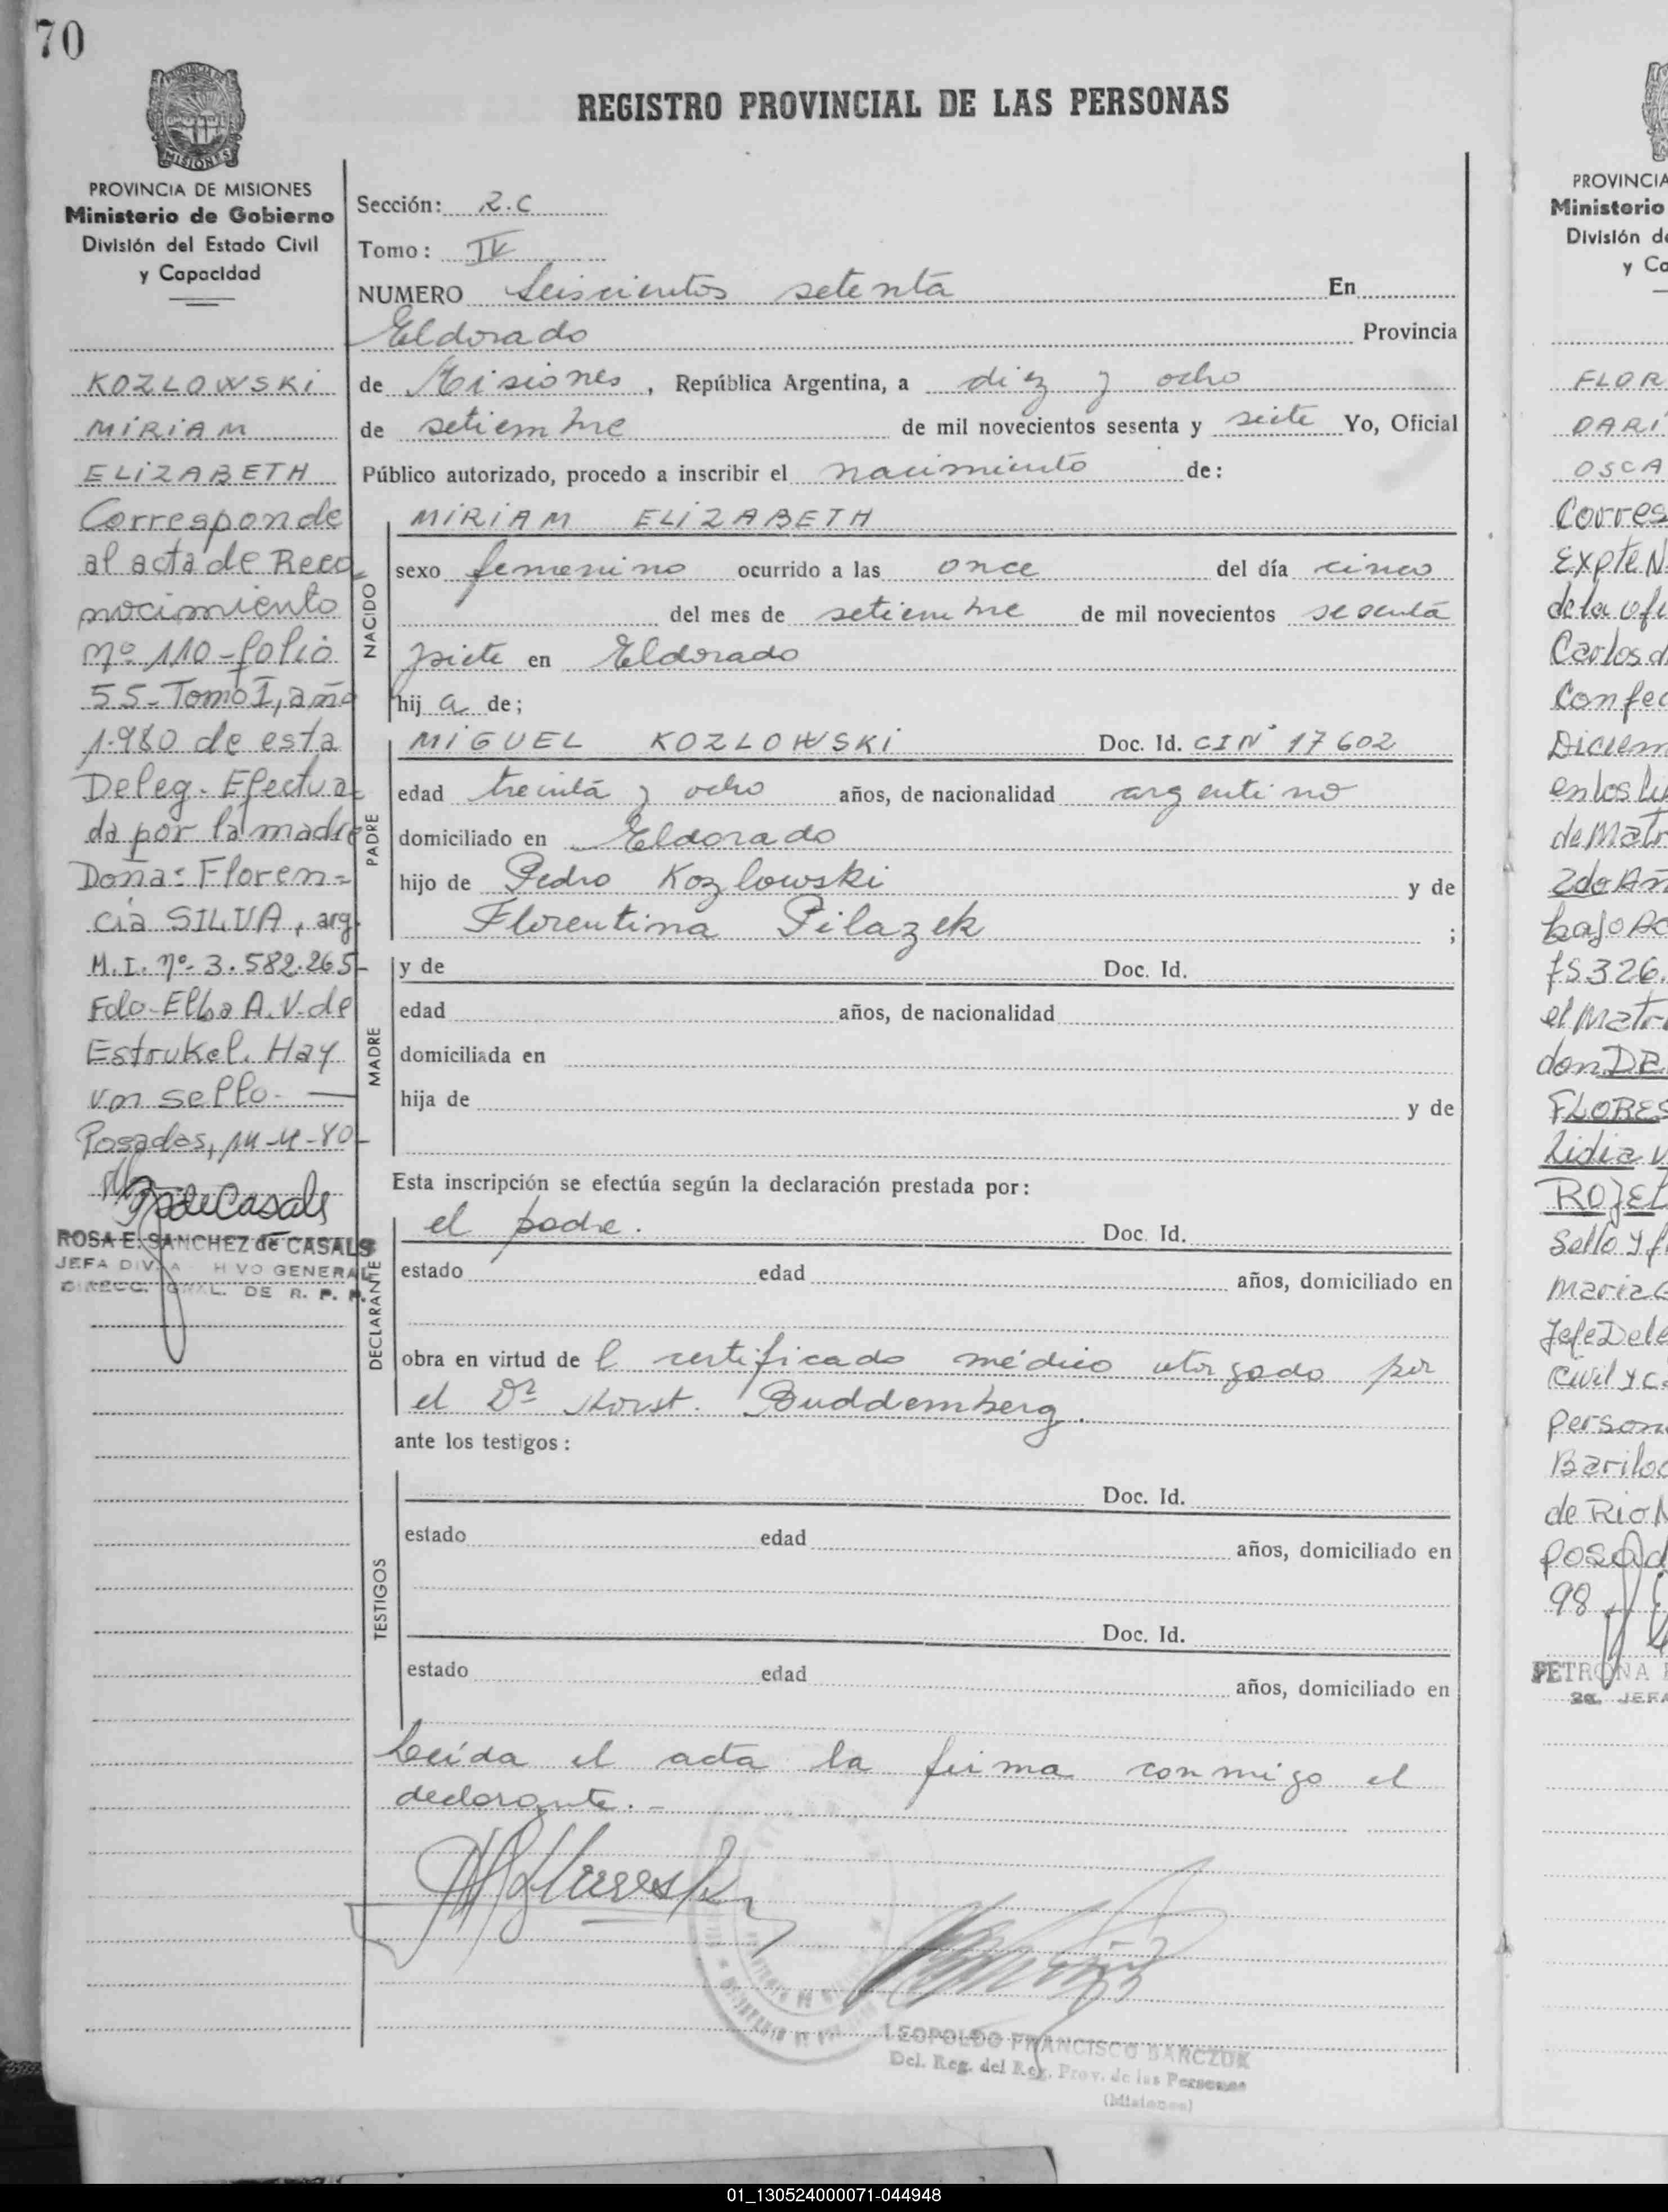 70
REGISTRO PROVINCIAL DE LAS PERSONAS
PROVINCIA DE MISIONES
Ministerio de Gobierno
División del Estado Civil
y Capacidad
KOZLOWSKI
MIRIAM
ELIZABETH
Corresponde
al acta de Reco
nocimiento
nº 110-folio
55-Tomo I, año
1.980 de esta
Deleg. Efectua-
da por la madre
Doña: Floren=
cia SILVA, arg.
M.I. nº 3.582.265-
Fdo-Elba A.V. de
Estrukel. Hay
un sello.
Posadas,
ROSA E. SANCHEZ de CASALS
JEFA DIV. GENERAL
DIRECC. GRAL. DE R. P. P.
Sección: R.C
Tomo: IV
NUMERO Seiscientos setenta En
Eldorado Provincia
de Misiones, República Argentina, a diez y ocho
de setiembre de mil novecientos sesenta y siete Yo, Oficial
Público autorizado, procedo a inscribir el nacimiento de:
NACIDO
MIRIAM ELIZABETH
sexo femenino ocurrido a las once del día cinco
del mes de setiembre de mil novecientos sesenta
y siete en Eldorado
hij a de;
PADRE
MIGUEL KOZLOWSKI Doc. Id. CIN° 17602
edad treinta y ocho años, de nacionalidad argentino
domiciliado en Eldorado
hijo de Pedro Kozlowski y de
Florentina Pilazek ;
MADRE
y de Doc. Id.
edad años, de nacionalidad
domiciliada en
hija de y de
Esta inscripción se efectúa según la declaración prestada por:
DECLARANTE
el padre. Doc. Id.
estado edad años, domiciliado en
obra en virtud de l certificado médico otorgado por
el Dr Horst. Buddemberg.
ante los testigos:
TESTIGOS
Doc. Id.
estado edad años, domiciliado en
Doc. Id.
estado edad años, domiciliado en
Leída el acta la firma conmigo el
declarante.-
LEOPOLDO FRANCISCO BARCZUK
Del. Reg. del Reg. Prov. de las Personas
(Misiones)
PROVINCIA
Ministerio
División de
y Ca
FLOR
DARI
OSCA
Corres
Expte N
de la ofi
Carlos d
Confec
Diciem
en los li
de Matr
2do Añ
bajo Ac
fs 326.
el Matr
don DE
FLORES
Lidia v
ROJEL
Sello y f
Maria
Jefe Dele
Civil y C
person
Bariloc
de Rio N
Posad
98
PETRONA
2a. JEFA
01_130524000071-044948